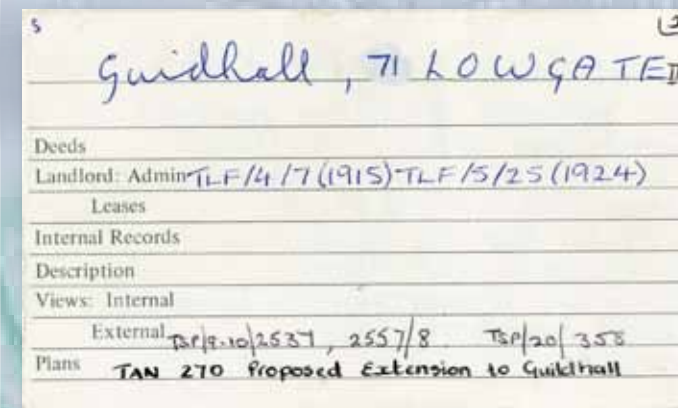 s
Guidhall, 71 LOWGATE
Deeds
Landlord: Admin TLF/4/7(1915) TLF/5/25(1924)
Leases
Internal Records
Description
Views: Internal
External TSP/9-10/2537, 2557/8 TSP/20/358
Plans TAN 270 Proposed Extension to Guildhall